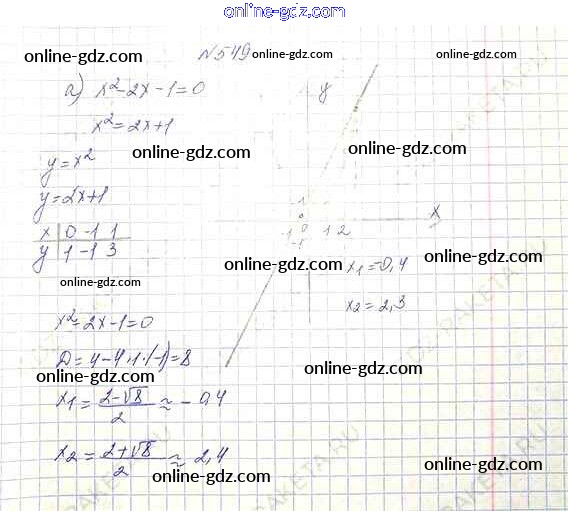 online-gdz.com
online-gdz.com №549 online-gdz.com online-gdz.com
а) x²-2x-1=0 y
x²=2x+1
online-gdz.com online-gdz.com
y=x²
y=2x+1
x | 0 -1 1
y | 1 -1 3
x
0 1 2
-1
online-gdz.com online-gdz.com
x₁=-0,4
x₂=2,3
x²-2x-1=0
D=4-4·1·(-1)=8
online-gdz.com online-gdz.com
x₁=(2-√8)/2≈-0,4
x₂=(2+√8)/2≈2,4
online-gdz.com online-gdz.com